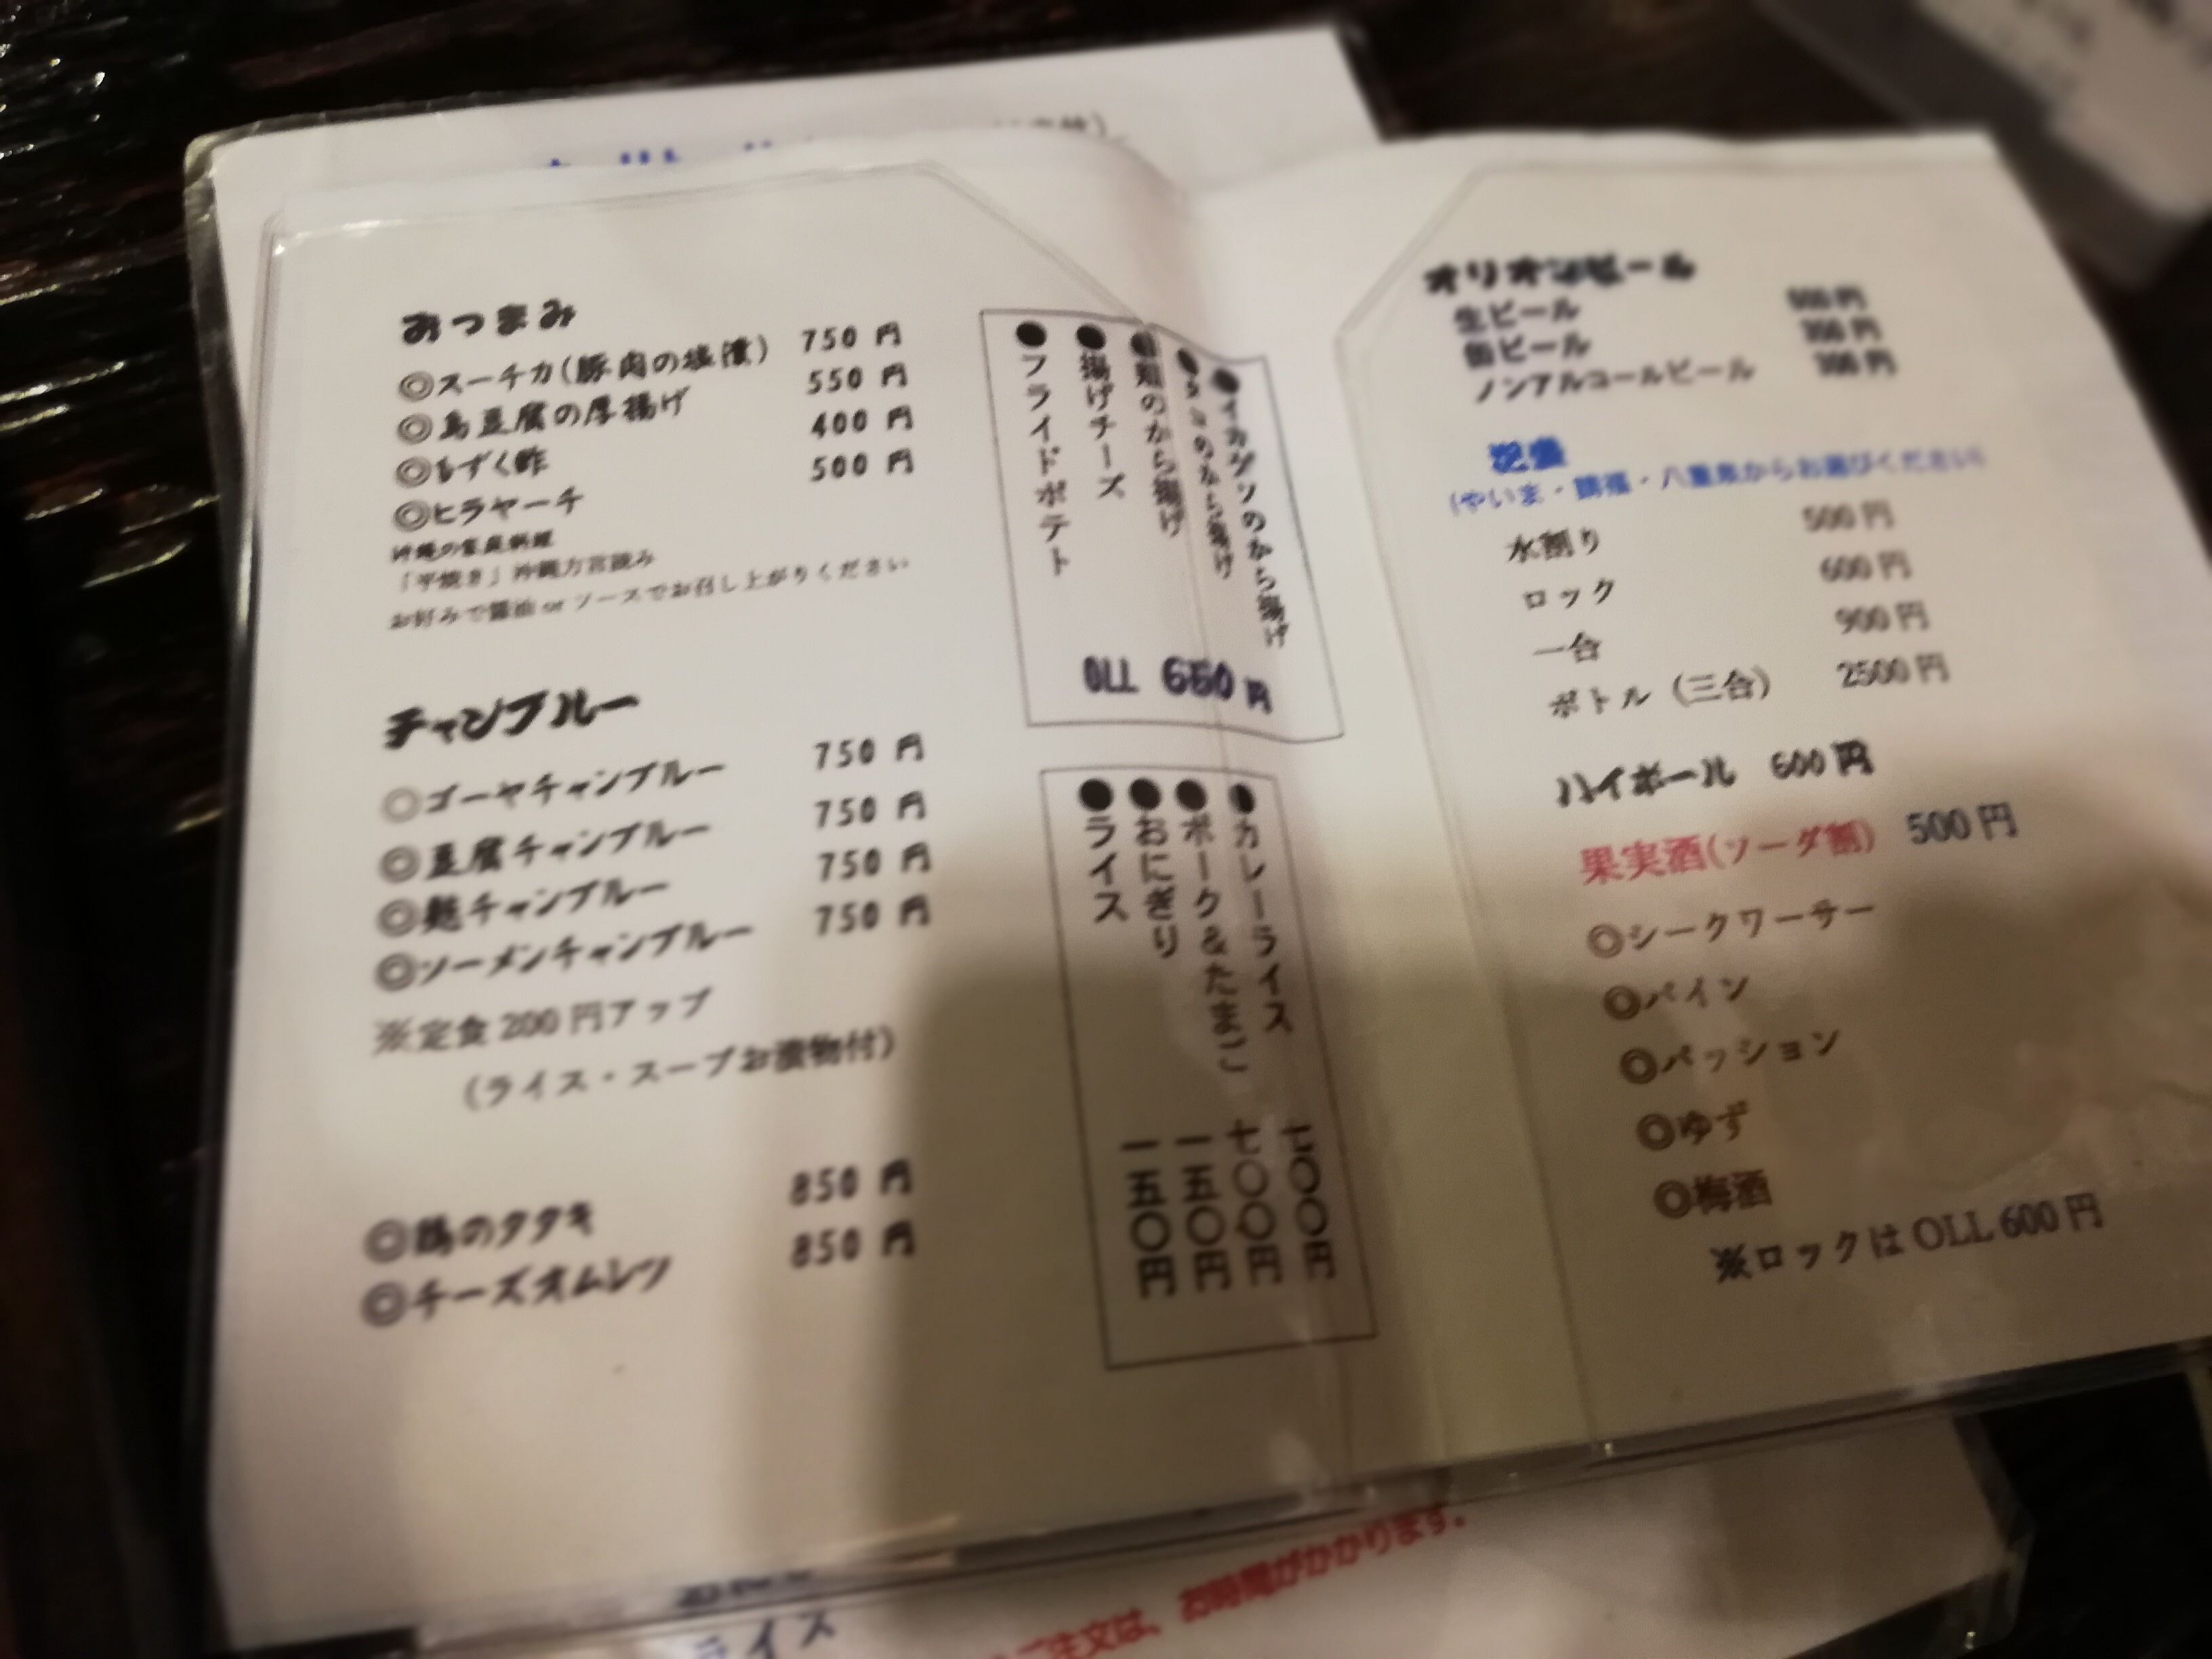 おつまみ
◎スーチカ(豚肉の塩漬) 750円
◎島豆腐の厚揚げ 550円
◎もずく酢 400円
◎ヒラヤーチ 500円
沖縄の家庭料理
「平焼き」沖縄方言読み
お好みで醤油orソースでお召し上がりください
チャンプルー
◎ゴーヤチャンプルー 750円
◎豆腐チャンプルー 750円
◎麩チャンプルー 750円
◎ソーメンチャンプルー 750円
※定食200円アップ
(ライス・スープお漬物付)
◎鶏のタタキ 850円
◎チーズオムレツ 850円
のから揚げ
のから揚げ
●鶏のから揚げ
●揚げチーズ
●フライドポテト
OLL 650円
●カレーライス 七〇〇円
●ポーク&たまご 七〇〇円
●おにぎり 一五〇円
●ライス 一五〇円
オリオンビール
生ビール
缶ビール
ノンアルコールビール
泡盛
(やいま・鶴福・八重泉からお選びください)
水割り 500円
ロック 600円
一合 900円
ボトル(三合) 2500円
ハイボール 600円
果実酒(ソーダ割) 500円
◎シークワーサー
◎パイン
◎パッション
◎ゆず
◎梅酒
※ロックはOLL600円
ライス
ご注文は、お時間がかかります。